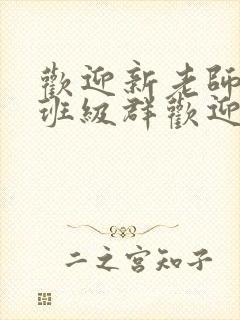 歡迎新老師
班級群歡迎
二之宮知子